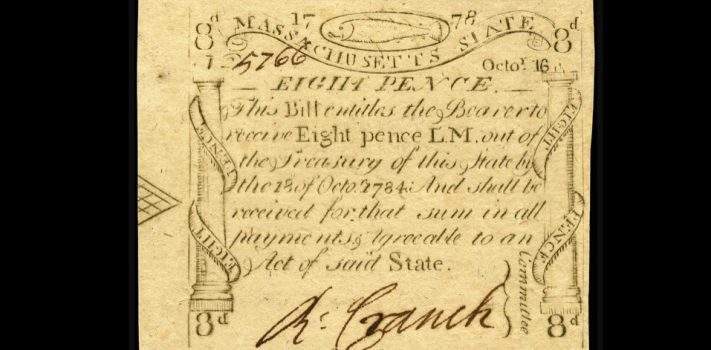 8d 17 78 8d
MASSACHUSETTS STATE
5766 Octor. 16d.
EIGHT PENCE.
This Bill entitles the Bearer to
receive Eight pence L.M. out of
the Treasury of this State by
the 18 of Octor. 1784: And shall be
received for that sum in all
payments, Agreeable to an
Act of said State.
EIGHT PENCE
EIGHT PENCE
Committee
8d Rd: Cranch 8d